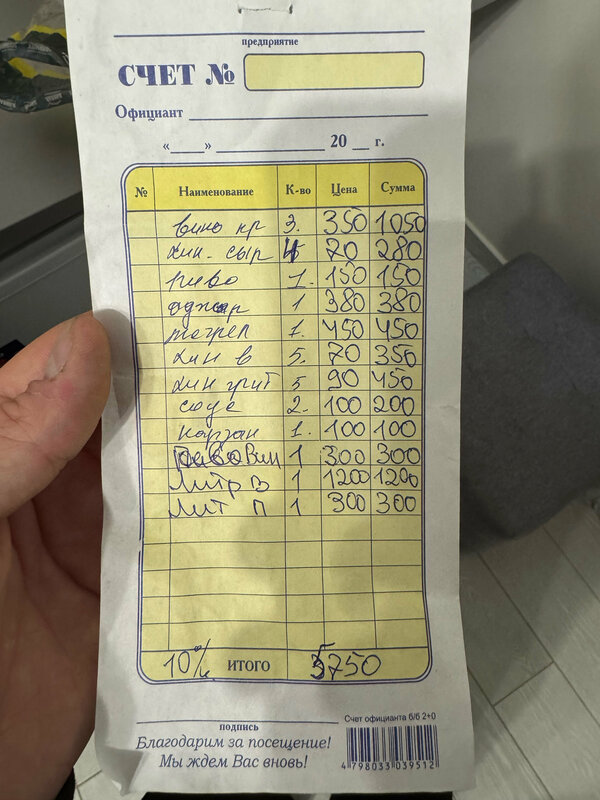 предприятие
СЧЕТ №
Официант
« » 20 г.
№ Наименование К-во Цена Сумма
вино кр 3. 350 1050
хин. сыр 4 70 280
пиво 1. 150 150
аджар 1 380 380
мегрел 1. 450 450
хин в 5. 70 350
хин гриб 5 90 450
соус 2. 100 200
1. 100 100
1 300 300
Литр в 1 1200 1200
Лит п 1 300 300
10% ИТОГО 5750
подпись
Счет официанта б/б 2+0
Благодарим за посещение!
Мы ждем Вас вновь!
4 798033 039512